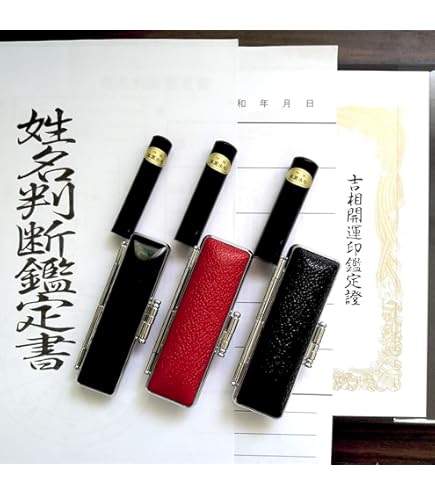 姓名判断鑑定書
和 年 月 日
吉相開運印鑑定證